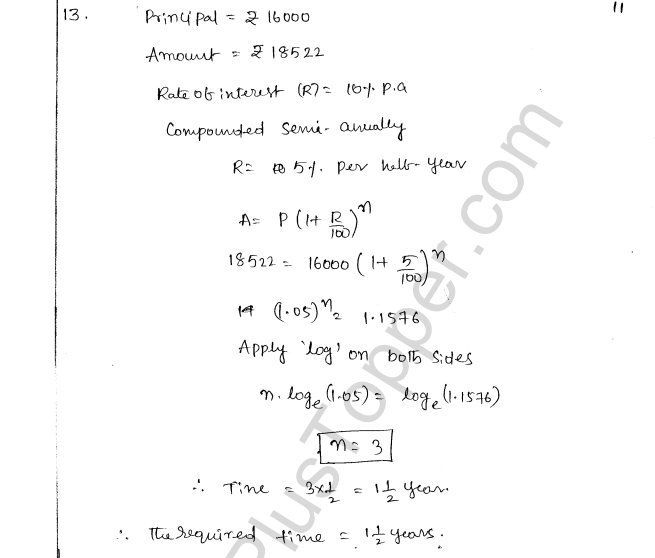 11
13. Principal = ₹ 16000
Amount = ₹ 18522
Rate of interest (R) = 10% P.a
Compounded Semi-anually
R = 5% Per half-year
A = P(1+R/100)^n
18522 = 16000(1+5/100)^n
(1.05)^n = 1.1576
Apply 'log' on both sides
n.logₑ(1.05) = logₑ(1.1576)
n = 3
∴ Time = 3×1/2 = 1 1/2 year.
∴ The required time = 1 1/2 years.
PlusTopper.com